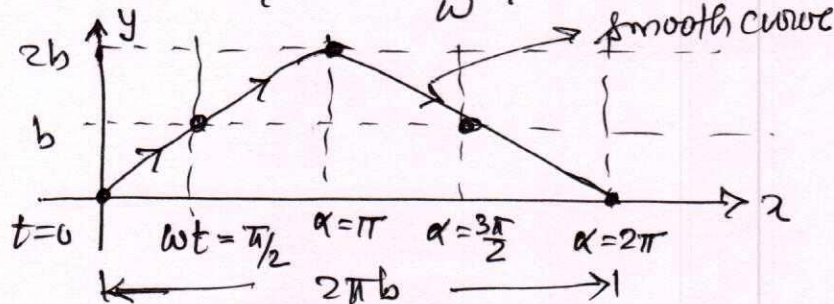 ω
y
smooth curve
2b
b
x
t=0
ωt = π/2
α=π
α=3π/2
α=2π
2πb